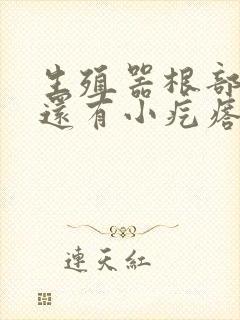 生殖器根部
還有小疙瘩
連天紅